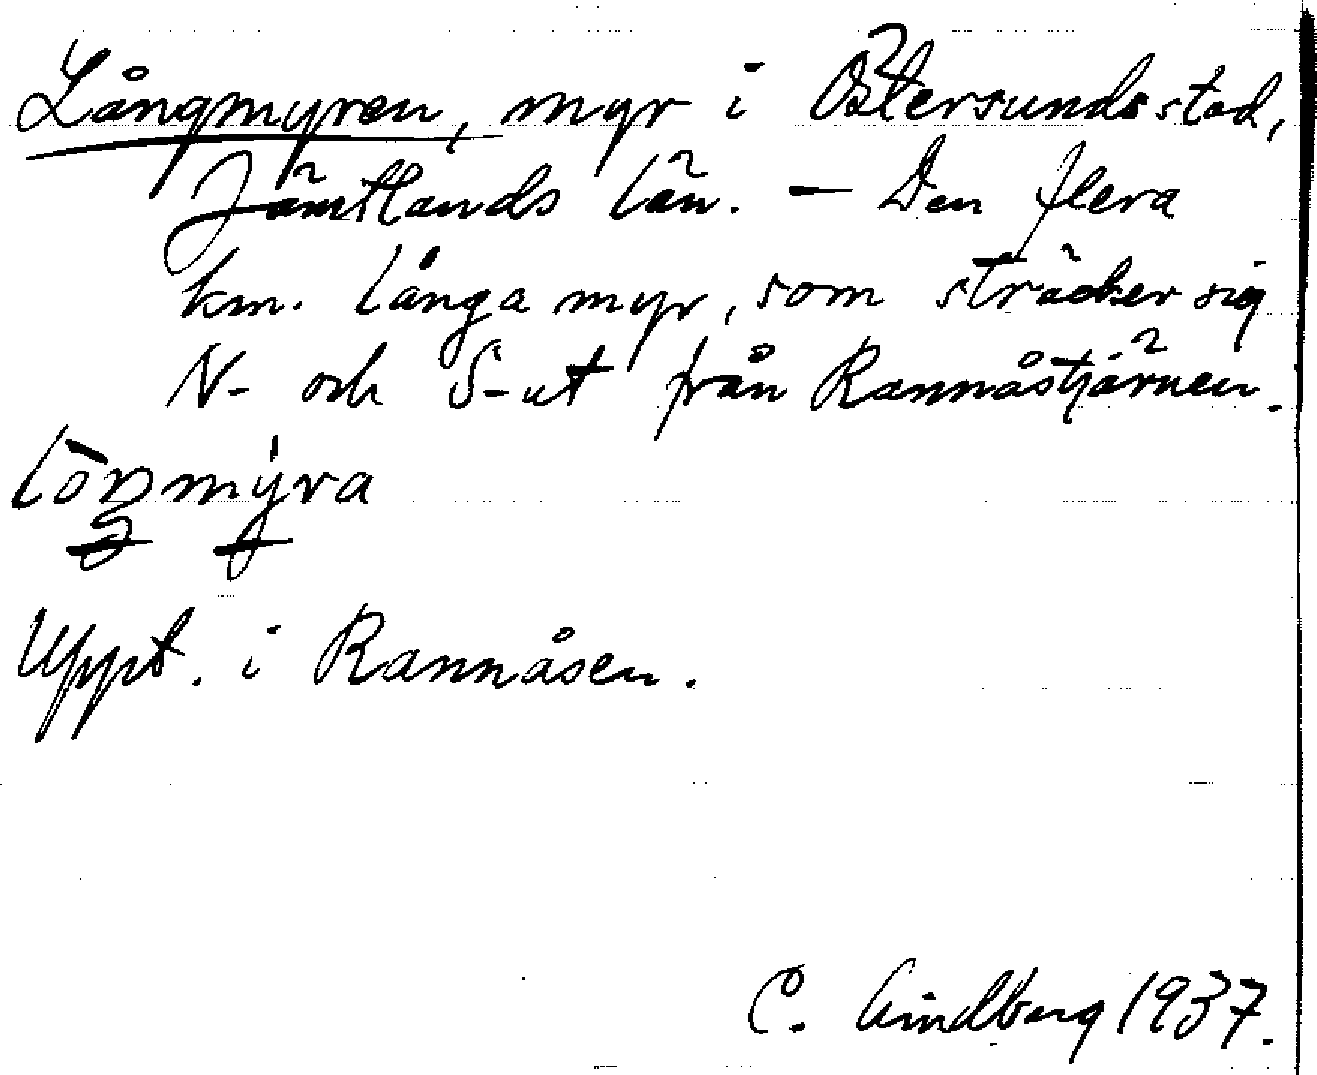 Långmyren, myr i Östersunds stad,
Jämtlands län. — Den flera
km. långa myr, som sträcker sig
N- och S-ut från Rannåstjärnen.
Uppt. i Rannåsen.
C. Lindberg 1937.